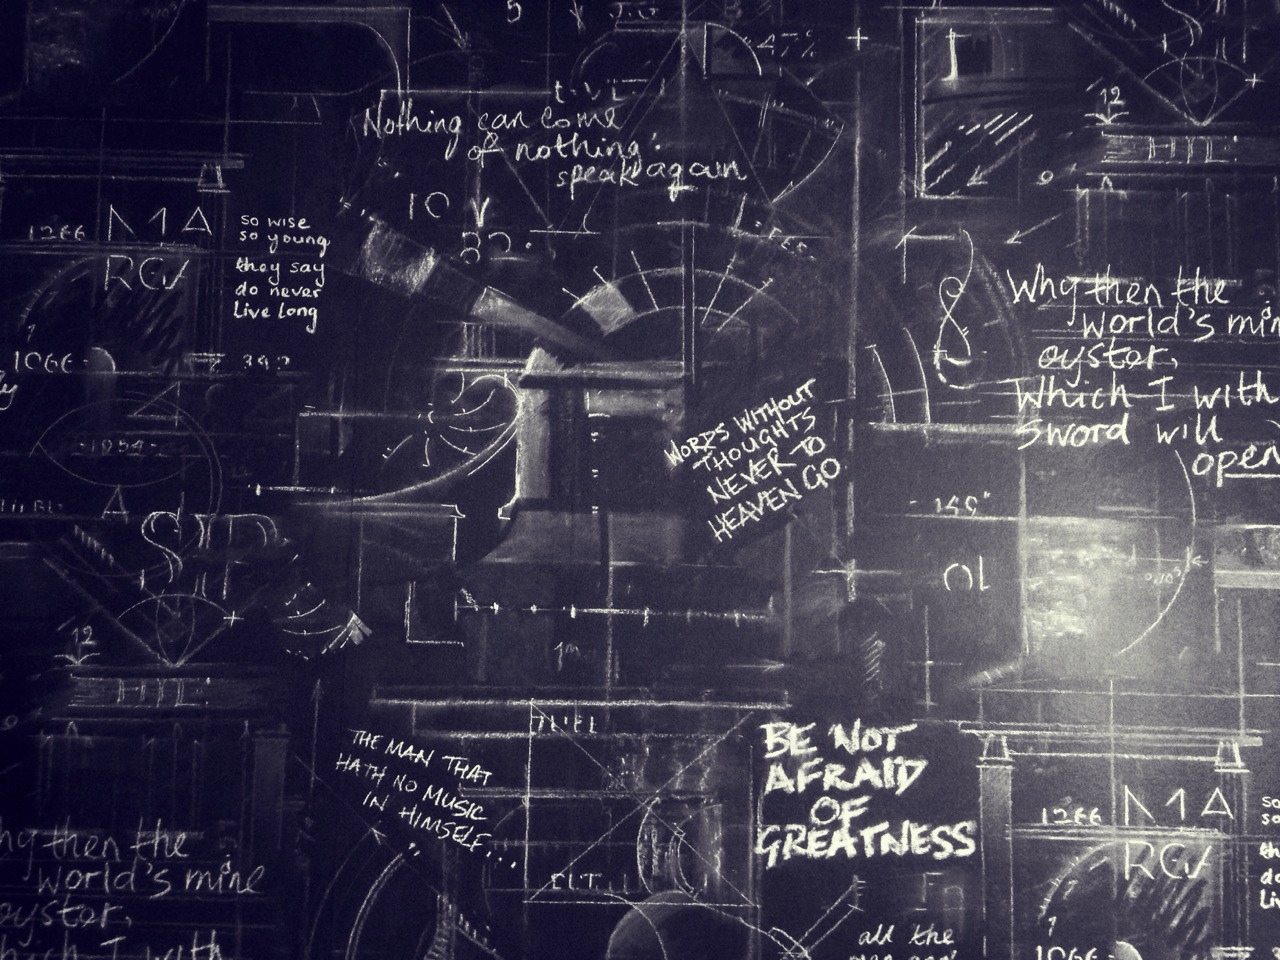 5
47%
Nothing can come
of nothing:
speak again
12
HTE:
10
1266 M1A
RCV
so wise
so young
they say
do never
live long
Why then the
world's min
oyster,
Which I with
sword will
open
1066
392
-1954-
A
WORDS WITHOUT
THOUGHTS
NEVER TO
HEAVEN GO
12
HTE:
1m
THE MAN THAT
HATH NO MUSIC
IN HIMSELF...
BE NOT
AFRAID
OF
GREATNESS
1266 M1A
RCV
so
so
th
do
Liv
hy then the
world's mine
oyster,
hich I with
ELT
all the
1066